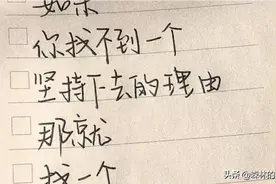 如果
你找不到一个
坚持下去的理由
那就
找一个
头条@蕞林的